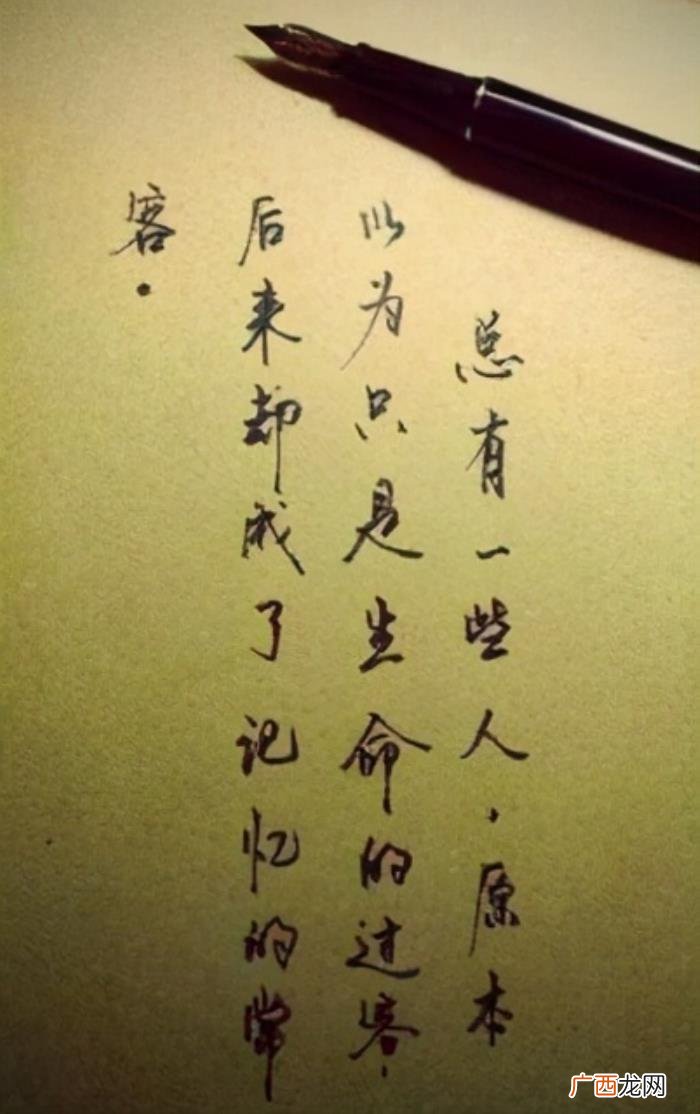 总有一些人，原本
以为只是生命的过客，
后来却成了记忆的常
客．
广西龙网